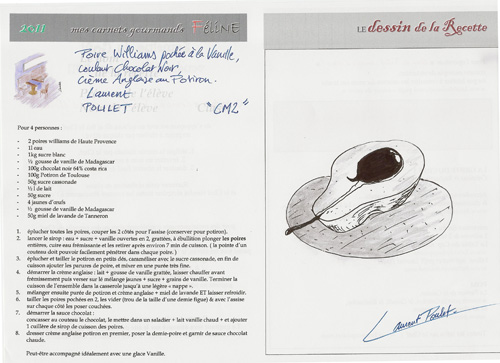 2011
mes carnets gourmands FéLiNE
Poire Williams pochée à la Vanille,
couleur Chocolat Noir,
Crème Anglaise au Potiron.
Laurent
POULET
"CM2"
Pour 4 personnes :
- 2 poires williams de Haute Provence
- 1l eau
- 1kg sucre blanc
- ½ gousse de vanille de Madagascar
- 100g chocolat noir 64% costa rica
- 100g Potiron de Toulouse
- 50g sucre cassonade
- ½ l de lait
- 50g sucre
- 4 jaunes d'œufs
- ½ gousse de vanille de Madagascar
- 50g miel de lavande de Tanneron
1. éplucher toutes les poires, couper les 2 côtés pour l'assise (conserver pour potiron).
2. lancer le sirop : eau + sucre + vanille ouvertes en 2, grattées, à ébullition plonger les poires
entières, cuire eau frémissante et les retirer après environ 7 min de cuisson. ( la pointe d'un
couteau doit pouvoir facilement pénétrer dans chaque poire. )
3. éplucher et tailler le potiron en petits dés, caraméliser avec le sucre cassonade, en fin de
cuisson ajouter les parures de poire, et mixer en une purée très fine.
4. démarrer la crème anglaise : lait + gousse de vanille grattée, laisser chauffer avant
frémissement puis verser sur le mélange jaunes + sucre + grains de vanille. Terminer la
cuisson de l'ensemble dans la casserole jusqu'à une légère « nappe ».
5. mélanger ensuite purée de potiron et crème anglaise + miel de lavande ET laisser refroidir.
6. tailler les poires pochées en 2, les vider (trou de la taille d'une demie figue) & avec l'assise
sur chaque côté les poser couchées.
7. démarrer la sauce chocolat :
concasser au couteau le chocolat, le mettre dans un saladier + lait vanille chaud + et ajouter
1 cuillère de sirop de cuisson des poires.
8. dresser crème anglaise potiron en premier, poser la demie-poire et garnir de sauce chocolat
chaude.
Peut-être accompagné idéalement avec une glace Vanille.
LE dessin de la Recette
Laurent Poulet